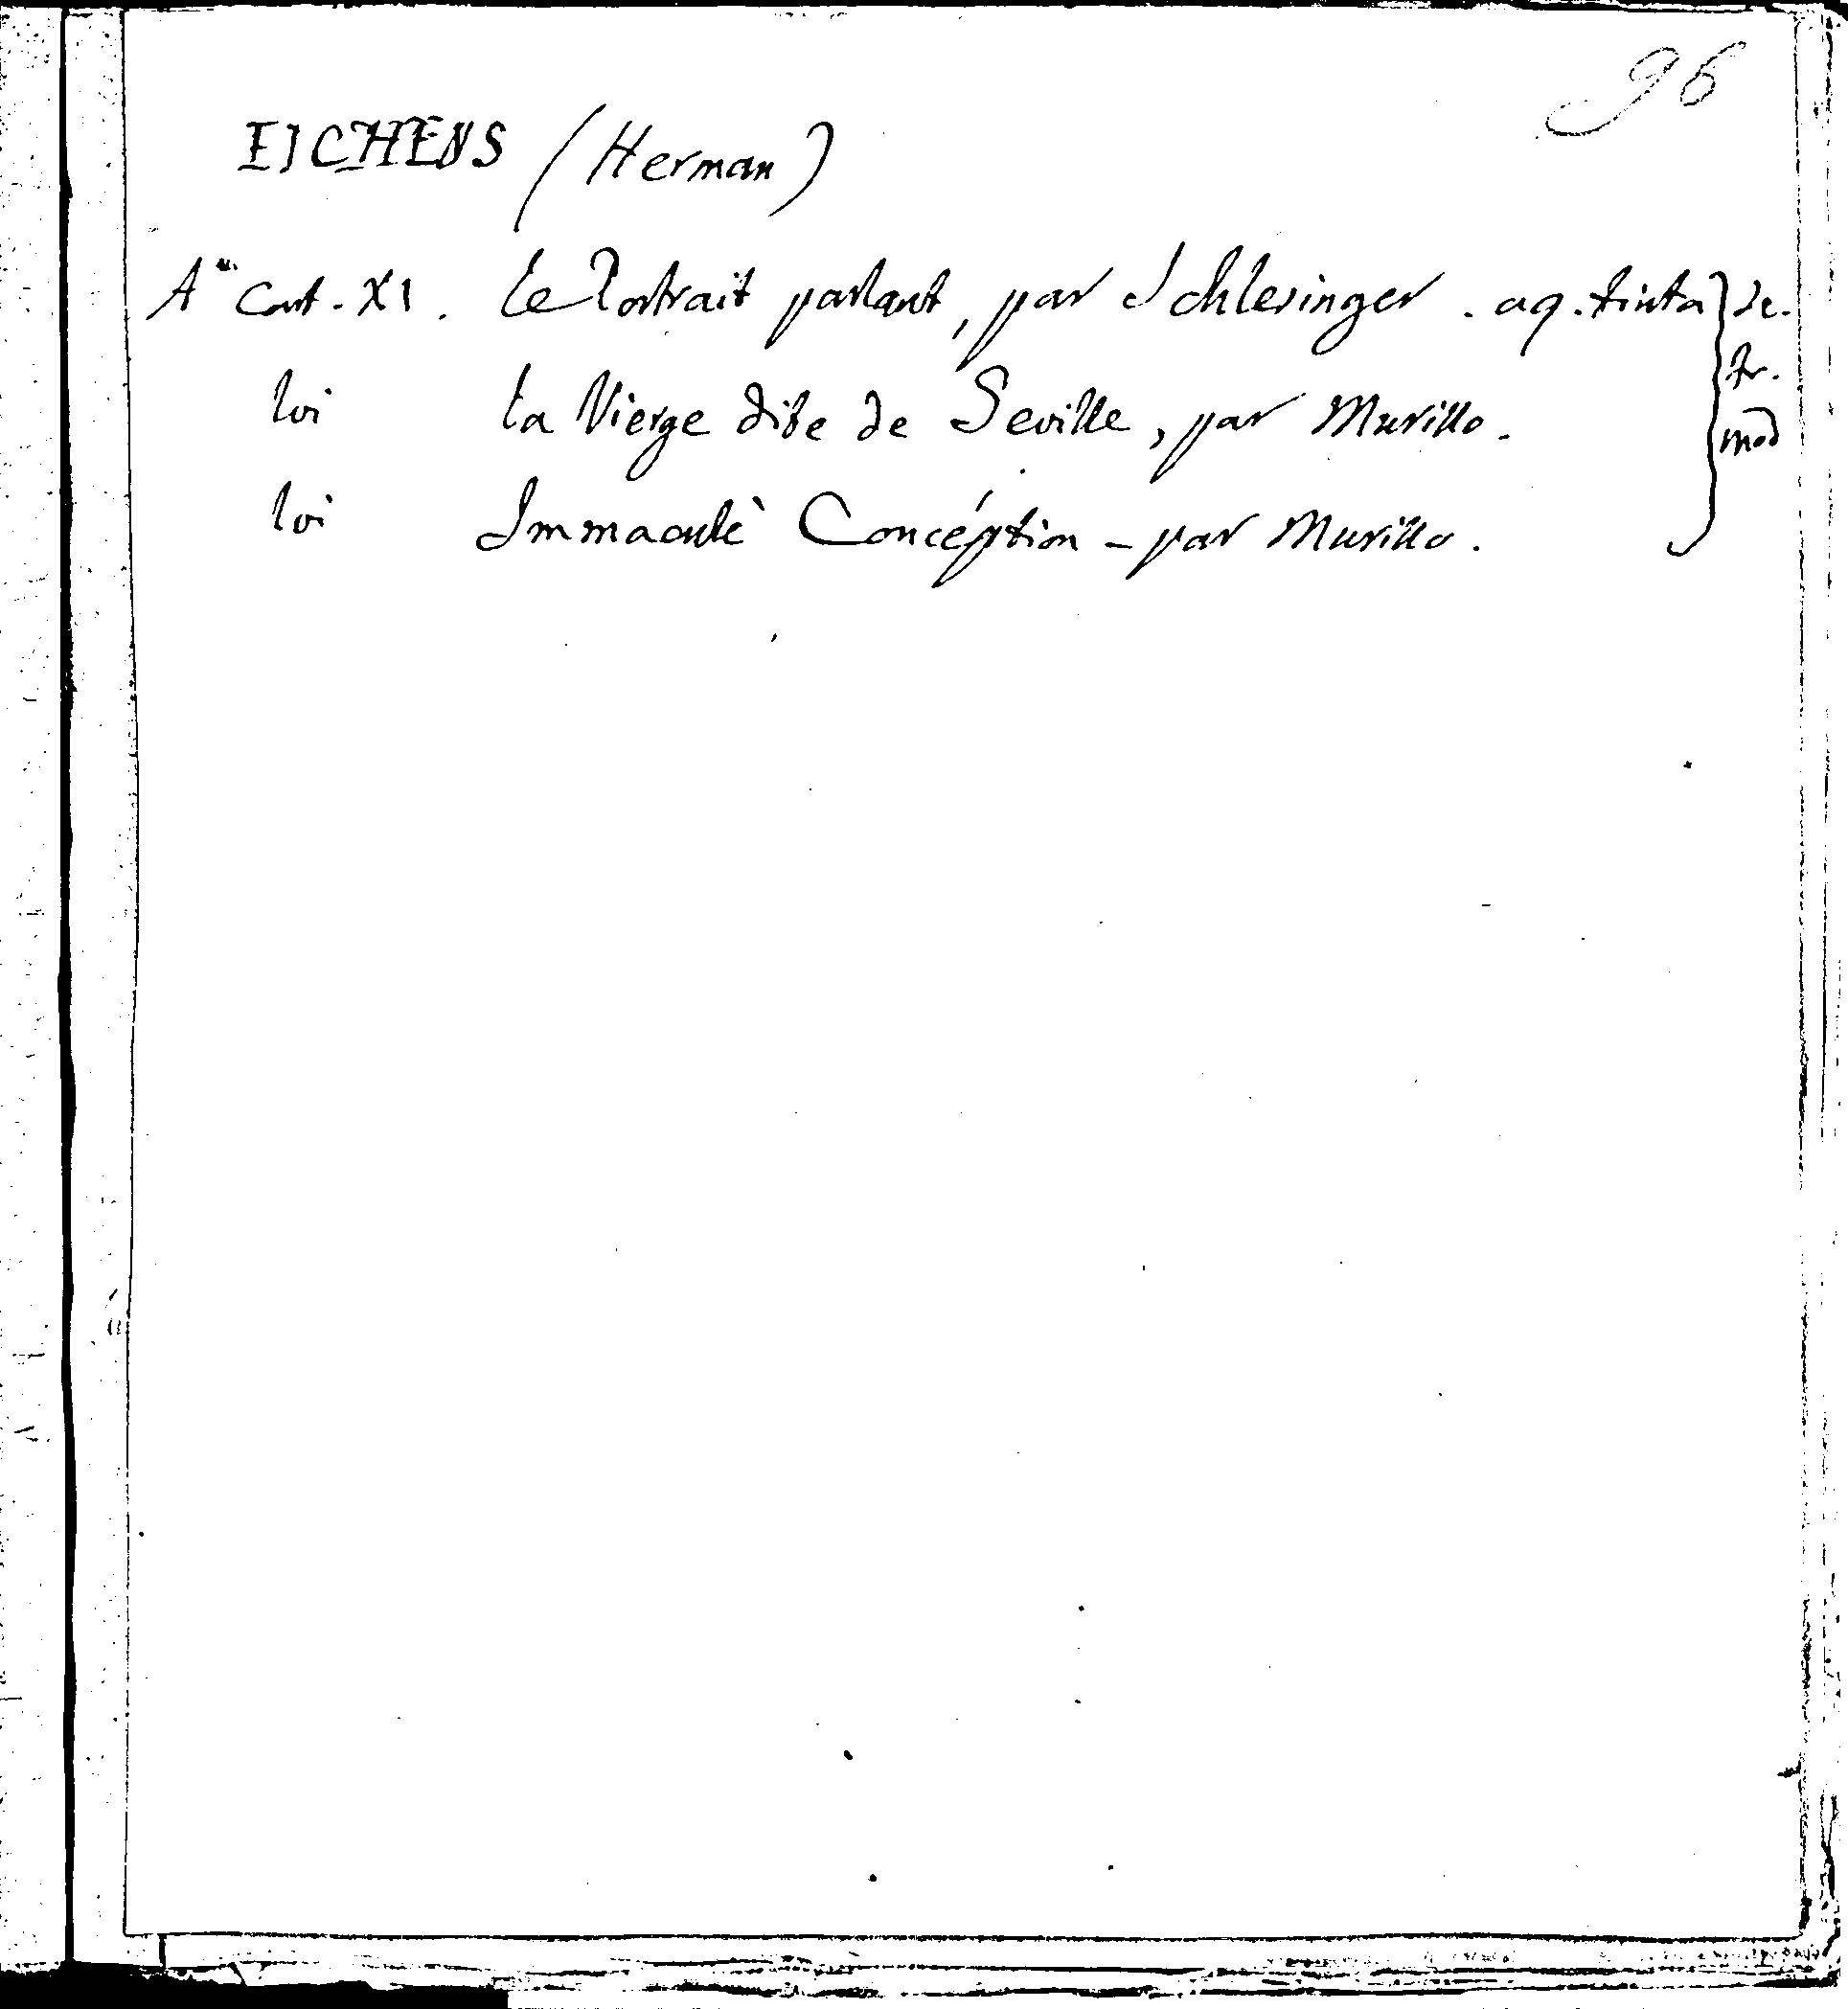 96
EICHENS (Herman)
A Cart. XI. Le Portrait parlant, par Schlesinger. aq. tinta
Ivi La Vierge dite de Seville, par Murillo.
Ivi Immaculè Concéption - par Murillo.
mod